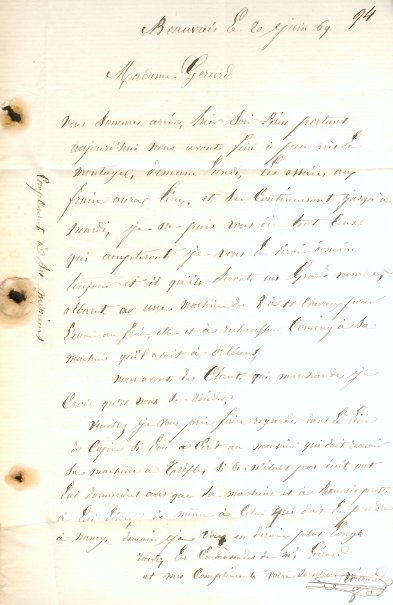 94
Beauvais le 20 Juin 69
Madame Gérard
Nous sommes arrivé hier soir bien portant
aujourd'hui nous avont fini à peu près le
montage, demain lundi, les essaies au
frain aura lieu, et se continueront jusqu'à
mardi, je ne puis vous dire tout ceux
qui accepteront je vous le dirai demain
toujours et il qu'ils seronts un Grand nombre,
albaret as une machine de 8 à 10 chevaux pour
au frein, elle et à réchauffeur comme à sa
machine qu'il avait à Orléans,
nous avont des Clients qui marchandes je
Crois qu'il vont se décider,
Veuillez je vous prie faire regarder dans le livre
de Copie si l'on à écrit au monsieur qui doit recevoir
sa machine à si ce n'était pas écrit ont
lui donnerais avis que sa machine et à Beauvais prette
à lui livrer, de même à Celui qui doit la prendre
à nancy, demain je vous en dirai plus long
les de Mr Gérard
et mes Compliments votre Serviteur
Compliments à ses messieurs